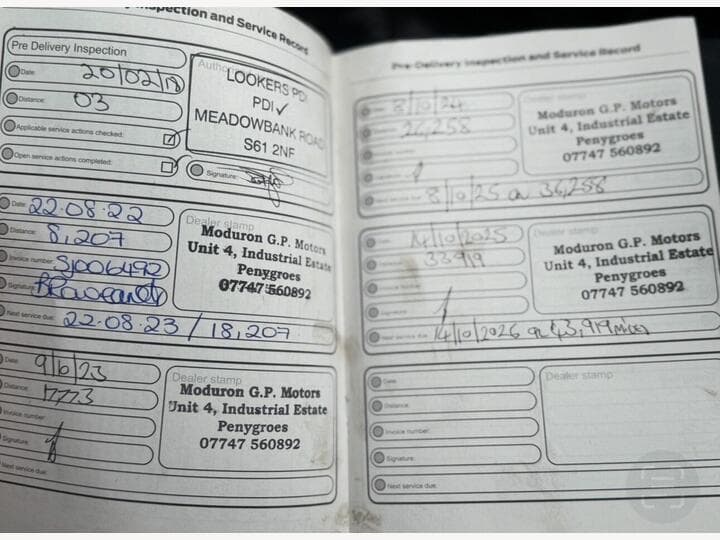 Inspection and Service Record
Pre Delivery Inspection
Date: 20/02/18
Distance: 03
Applicable service actions checked: ✓
Open service actions completed:
LOOKERS PDI
PDI ✓
MEADOWBANK ROAD
S61 2NF
Signature:
Date: 22.08.22
Distance: 8,207
Invoice number: SJ006492
Signature:
Next service due: 22.08.23 / 18,207
Dealer stamp
Moduron G.P. Motors
Unit 4, Industrial Estate
Penygroes
07747 560892
Date: 9/6/23
Distance: 17773
Invoice number:
Signature:
Next service due:
Dealer stamp
Moduron G.P. Motors
Unit 4, Industrial Estate
Penygroes
07747 560892
Pre-Delivery Inspection and Service Record
8/10/24
26,258
8/10/25 or 36,258
Dealer stamp
Moduron G.P. Motors
Unit 4, Industrial Estate
Penygroes
07747 560892
14/10/2025
33919
Signature:
Next service due: 14/10/2026 or 43,919 miles
Dealer stamp
Moduron G.P. Motors
Unit 4, Industrial Estate
Penygroes
07747 560892
Date:
Distance:
Invoice number:
Signature:
Next service due:
Dealer stamp